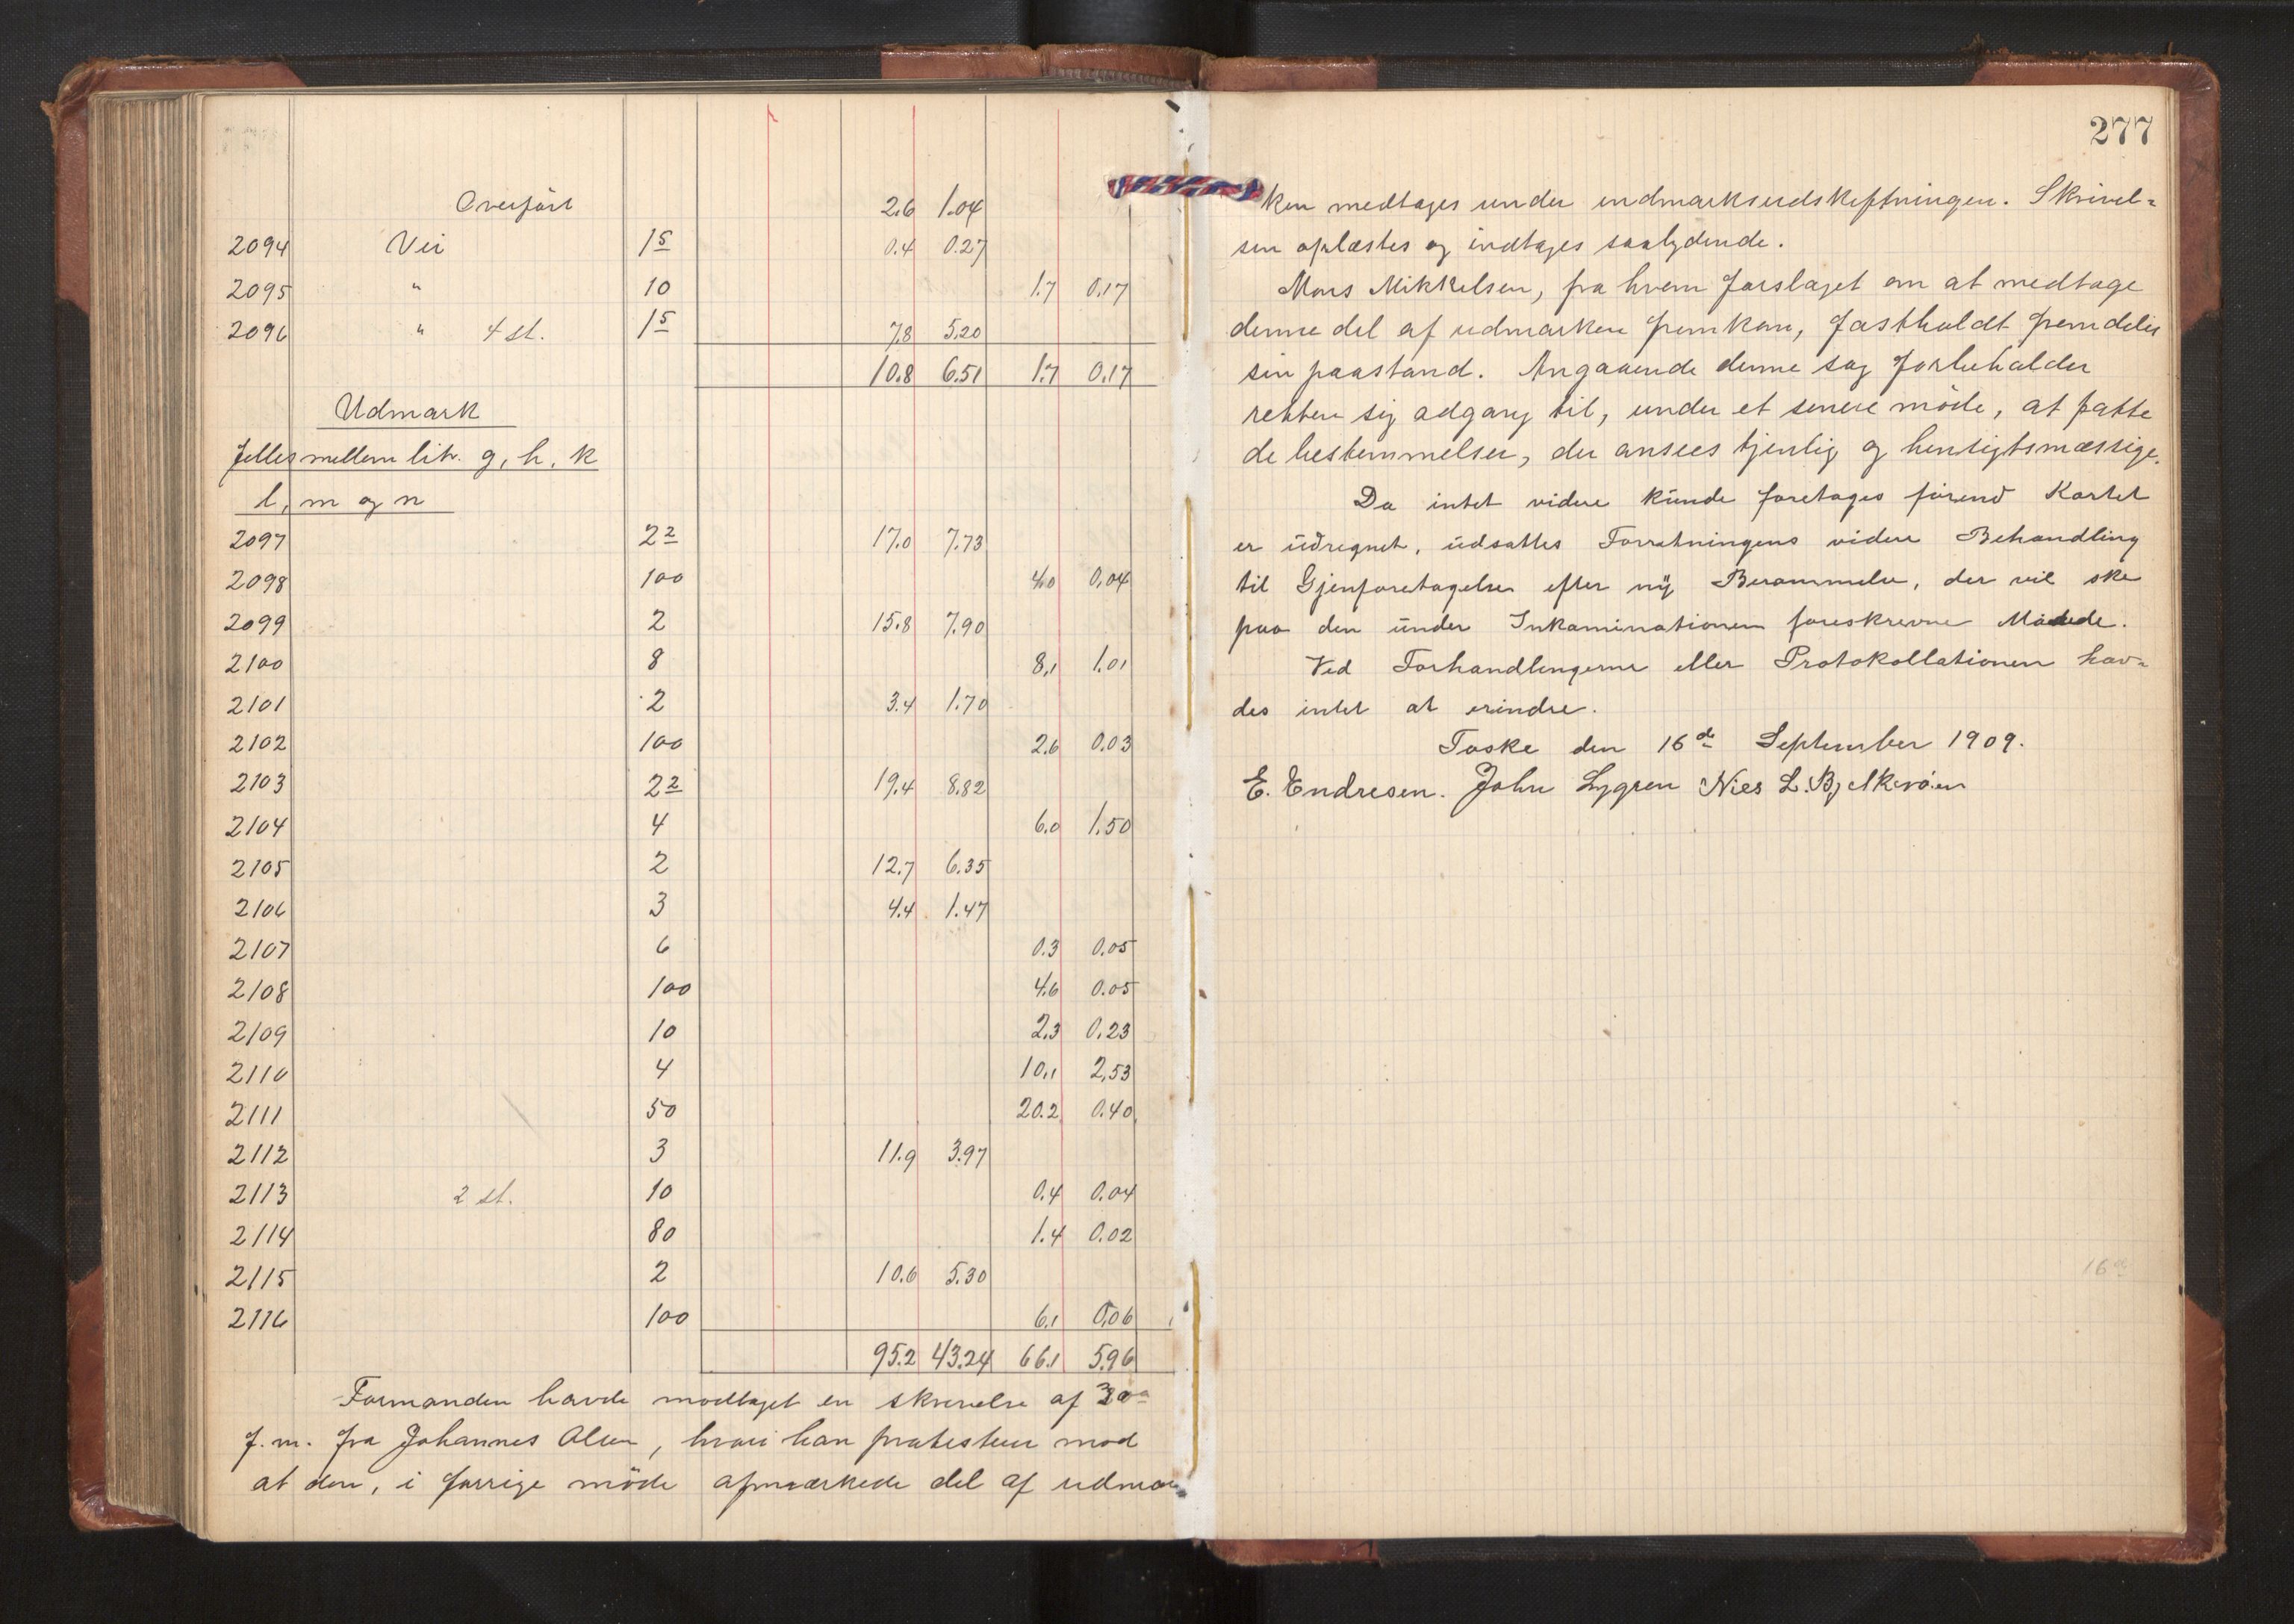 Overført 2.6 1.04
2094 Vei 1⁵ 0.4 0.27
2095 " 10 1.7 0.17
2096 " 4 st. 1⁵ 7.8 5.20
10.8 6.51 1.7 0.17
Udmark
Felles mellem litr. g, h, k
l, m og n
2097 2² 17.0 7.73
2098 100 4.0 0.04
2099 2 15.8 7.90
2100 8 8.1 1.01
2101 2 3.4 1.70
2102 100 2.6 0.03
2103 2² 19.4 8.82
2104 4 6.0 1.50
2105 2 12.7 6.35
2106 3 4.4 1.47
2107 6 0.3 0.05
2108 100 4.6 0.05
2109 10 2.3 0.23
2110 4 10.1 2.53
2111 50 20.2 0.40
2112 3 11.9 3.97
2113 2 st. 10 0.4 0.04
2114 80 1.4 0.02
2115 2 10.6 5.30
2116 100 6.1 0.06
95.2 43.24 66.1 5.96
Formanden havde modtaget en skrivelse af
f. m. fra Johannes Olsen, hvori han protesterer mod
at den, i forrige møde afmærkede del af udmar
277
ken medtages under indmarksudskiftningen. Skrivel=
sen oplæstes og indtages saalydende.
Mons Mikkelsen, fra hvem forslaget om at medtage
denne del af udmarken fremkom, fastholdt fremdeles
sin paastand. Angaaende denne sag forbeholder
retten sig adgang til, under et senere møde, at fatte
de bestemmelser, der ansees tjenlig og hensigtsmæssige.
Da intet videre kunde foretages førend Kartet
er udregnet, udsattes Forretningens videre Behandling
til Gjenforetagelse efter ny Berammelse, der vil ske
paa den under Inkaminationen foreskrevne Maade.
Ved Forhandlingerne eller Protokollationen hav=
des intet at erindre.
Toske den 16de September 1909.
E. Endresen. John Lygren Nies L. Bjelkerøien
16de